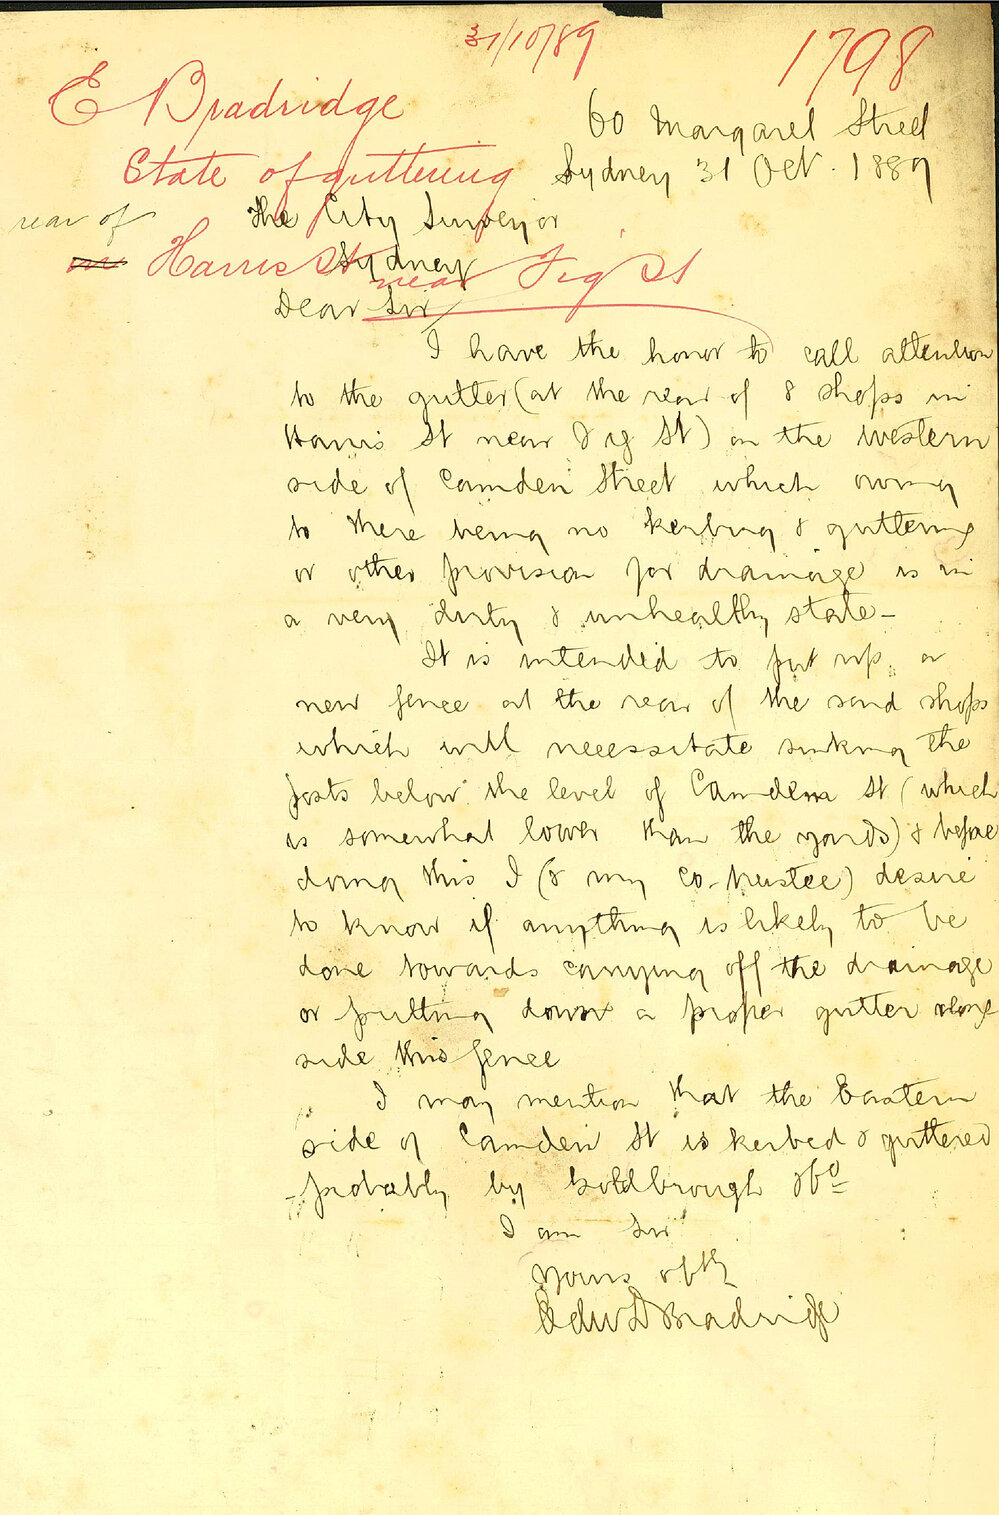 31/10/89
1798
E Bradridge
State of guttering
rear of
on Harris St near Fig St
60 Margaret Street
Sydney 31 Oct. 1889
The City Surveyor
Sydney
Dear Sir
I have the honor to call attention
to the gutter (at the rear of 8 shops in
Harris St near Fig St) on the western
side of Camden Street which owing
to there being no kerbing & guttering
or other provision for drainage is in
a very dirty & unhealthy state -
It is intended to put up a
new fence at the rear of the said shops
which will necessitate sinking the
posts below the level of Camden St (which
is somewhat lower than the yards) & before
doing this I (& my co-trustee) desire
to know if anything is likely to be
done towards carrying off the drainage
or putting down a proper gutter along
side this fence
I may mention that the Eastern
side of Camden St is kerbed & guttered
probably by Goldbrough & Co
I am Sir
Yours
Edwd Bradridge